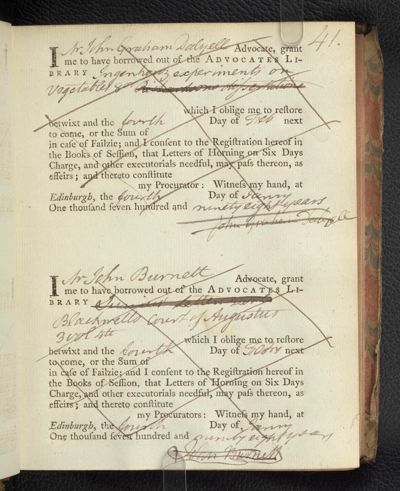 41.
I Mr John Graham Dalyell Advocate, grant
me to have borrowed out of the ADVOCATES LI-
BRARY Ingenhouz experiments on
Vegetables &
which I oblige me to restore
betwixt and the fourth Day of Feb next
to come, or the Sum of
in case of Failzie; and I consent to the Registration hereof in
the Books of Session, that Letters of Horning on Six Days
Charge, and other executorials needful, may pass thereon, as
effeirs; and thereto constitute
my Procurator: Witness my hand, at
Edinburgh, the fourth Day of Janry
One thousand seven hundred and ninety eight years
John Graham Dalyell
I Mr John Burnett Advocate, grant
me to have borrowed out of the ADVOCATES LI-
BRARY
Blackwells Court of Augustus
3 vol 4to
which I oblige me to restore
betwixt and the fourth Day of next
to come, or the Sum of
in case of Failzie; and I consent to the Registration hereof in
the Books of Session, that Letters of Horning on Six Days
Charge, and other executorials needful, may pass thereon, as
effeirs; and thereto constitute
my Procurators: Witness my hand, at
Edinburgh, the fourth Day of Janry
One thousand seven hundred and ninety eight years
John Burnett